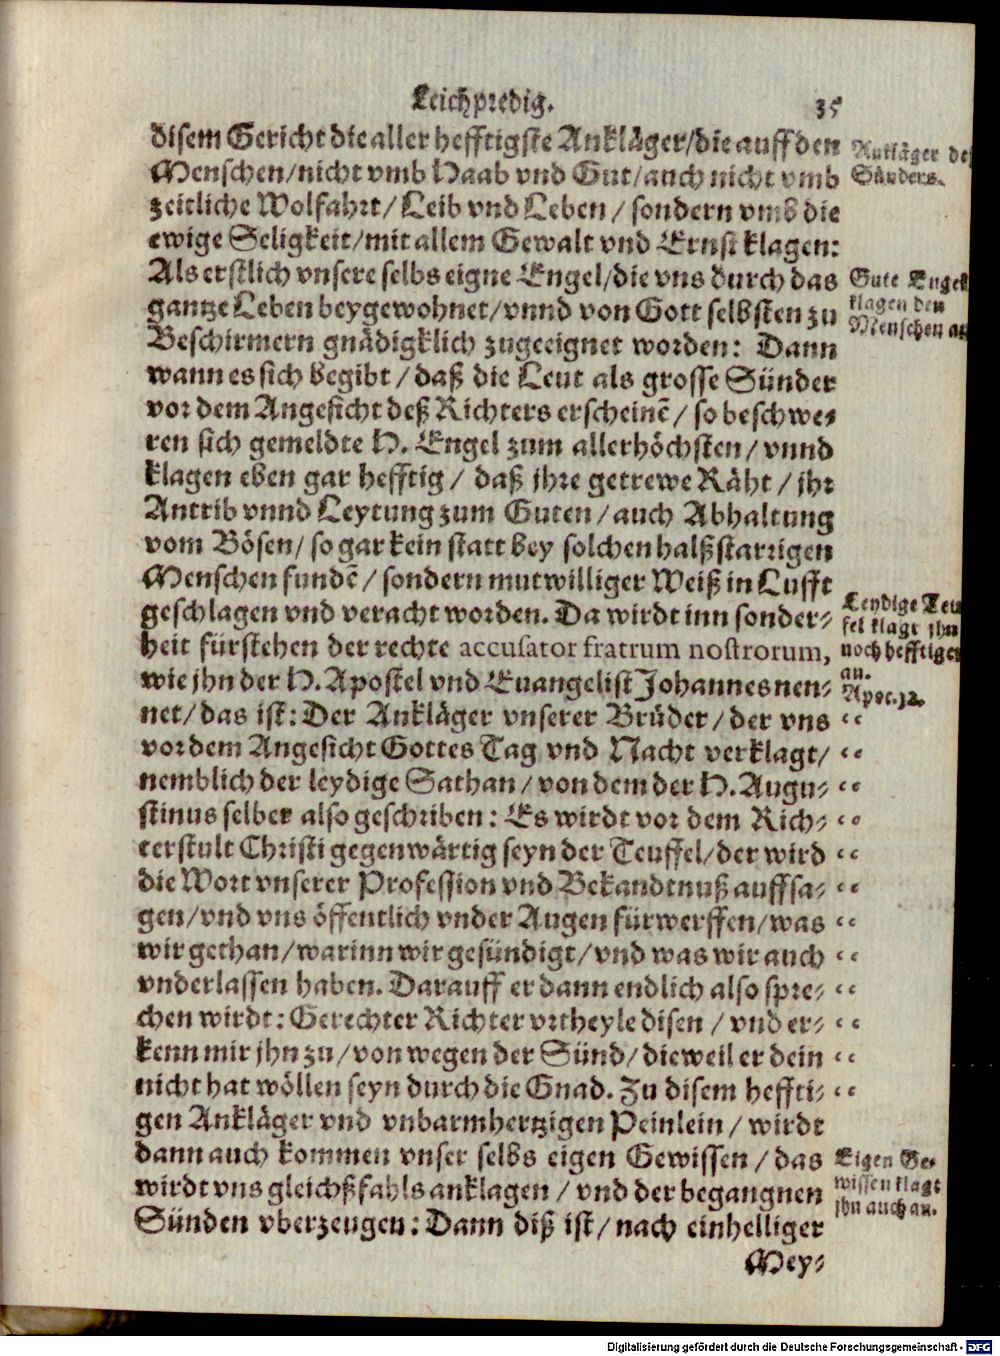 Leichpredig. 35
disem Gericht die aller hefftigste Ankläger/die auff den
Menschen/nicht vmb Haab vnd Gut/auch nicht vmb
zeitliche Wolfahrt/Leib vnd Leben/sondern vmb die
ewige Seligkeit/mit allem Gewalt vnd Ernst klagen:
Als erstlich vnsere selbs eigne Engel/die vns durch das
gantze Leben beygewohnet/vnnd von Gott selbsten zu
Beschirmern gnädigklich zugeeignet worden: Dann
wann es sich begibt/daß die Leut als grosse Sünder
vor dem Angesicht deß Richters erscheinẽ/so beschwe-
ren sich gemeldte H. Engel zum allerhöchsten/vnnd
klagen eben gar hefftig/daß jhre getrewe Räht/jhr
Antrib vnnd Leytung zum Guten/auch Abhaltung
vom Bösen/so gar kein statt bey solchen halßstarrigen
Menschen fundẽ/sondern mutwilliger Weiß in Lufft
geschlagen vnd veracht worden. Da wirdt inn sonder-
heit fürstehen der rechte accusator fratrum nostrorum,
wie jhn der H. Apostel vnd Euangelist Johannes nen-
net/das ist: Der Ankläger vnserer Brüder/der vns
vor dem Angesicht Gottes Tag vnd Nacht verklagt/
nemblich der leydige Sathan/von dem der H. Augu-
stinus selber also geschriben: Es wirdt vor dem Rich-
terstult Christi gegenwärtig seyn der Teuffel/der wird
die Wort vnserer Profession vnd Bekandtnuß auffsa-
gen/vnd vns öffentlich vnder Augen fürwerffen/was
wir gethan/warinn wir gesündigt/vnd was wir auch
vnderlassen haben. Darauff er dann endlich also spre-
chen wirdt: Gerechter Richter vrtheyle disen/vnd er-
kenn mir jhn zu/von wegen der Sünd/dieweil er dein
nicht hat wöllen seyn durch die Gnad. Zu disem heffti-
gen Ankläger vnd vnbarmhertzigen Peinlein/wirdt
dann auch kommen vnser selbs eigen Gewissen/das
wirdt vns gleichßfahls anklagen/vnd der begangnen
Sünden vberzeugen: Dann diß ist/nach einhelliger
Mey-
Ankläger des
Sünders.
Gute Engel
klagen den
Menschen an
Leydige Teu
fel klagt jhn
noch hefftiger
an.
Apoc. 12.
Eigen Ge-
wissen klagt
jhn auch an.
Digitalisierung gefördert durch die Deutsche Forschungsgemeinschaft - DFG